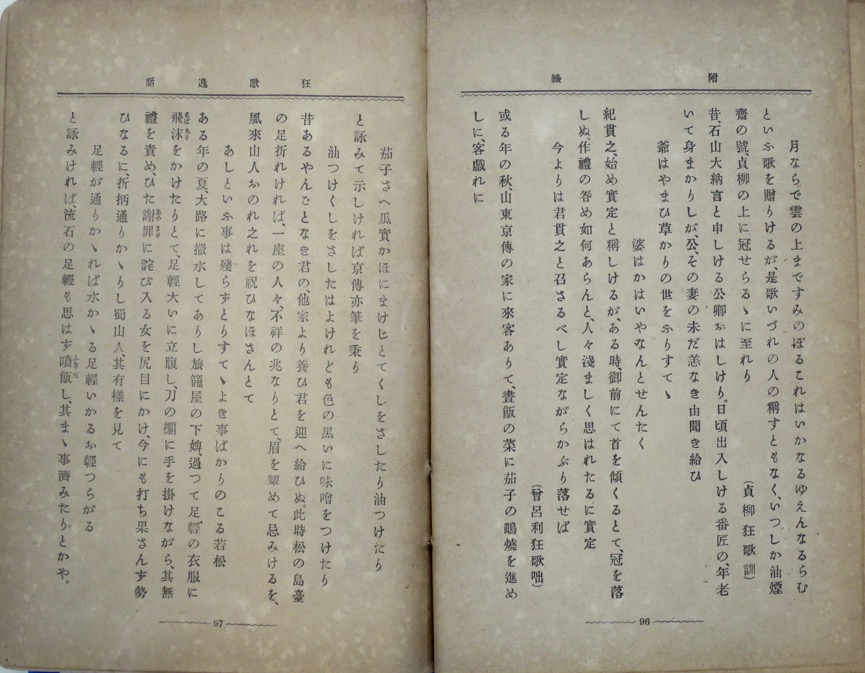 附錄
月ならで雲の上まですみのぼるこれはいかなるゆえんなるらむ
といふ歌を贈りけるが、是歌いづれの人の稱すともなく、いつしか油煙
齋の號、貞柳の上に冠せらるゝに至れり
(貞柳狂歌訓)
昔、石山大納言と申しける公卿おはしけり。日頃出入しける番匠の、年老
いて身まかりしが、公その妻の未だ恙なき由聞き給ひ
爺はやまひ草かりの世をふりすてゝ
婆はかはいやなんとせんたく
紀貫之始め實定と稱しけるが、ある時、御前にて首を傾くるとて、冠を落
しぬ。作禮の咎め如何あらんと、人々淺ましく思はれたるに實定
今よりは君貫之と召さるべし實定ながらかぶり落せば
(曾呂利狂歌咄)
或る年の秋、山東京傳の家に來客ありて、晝飯の菜に茄子の鴫燒を進め
しに、客戲れに
96
狂歌逸話
茄子さへ瓜實かほにまけじとてくしをさしたり油つけたり
と詠みて示しければ京傳亦筆を秉り
油つけくしをさしたはよけれども色の黒いに味噌をつけたり
昔あるやんごとなき君の、他家より養ひ君を迎へ給ひぬ。此時松の島臺
の足折れければ、一座の人々、不祥の兆なりとて、眉を顰めて忌みけるを、
風來山人おのれ之れを祝ひなほさんとて
あしといふ事は殘らずとりすてゝよき事ばかりのこる若松
ある年の夏、大路に撒水してありし旅籠屋の下婢、過つて足輕の衣服に
飛沫をかけたりとて、足輕大いに立腹し、刀の欛に手を掛けながら、其無
禮を責め、ひた謝罪に詫び入る女を尻目にかけ、今にも打ち果さんず勢
ひなるに、折柄通りかゝりし蜀山人、其有樣を見て
足輕が通りかゝれば水かゝる足輕いかるお輕つらがる
と詠みければ、流石の足輕も思はず噴飯し、其まゝ事濟みたりとかや。
97